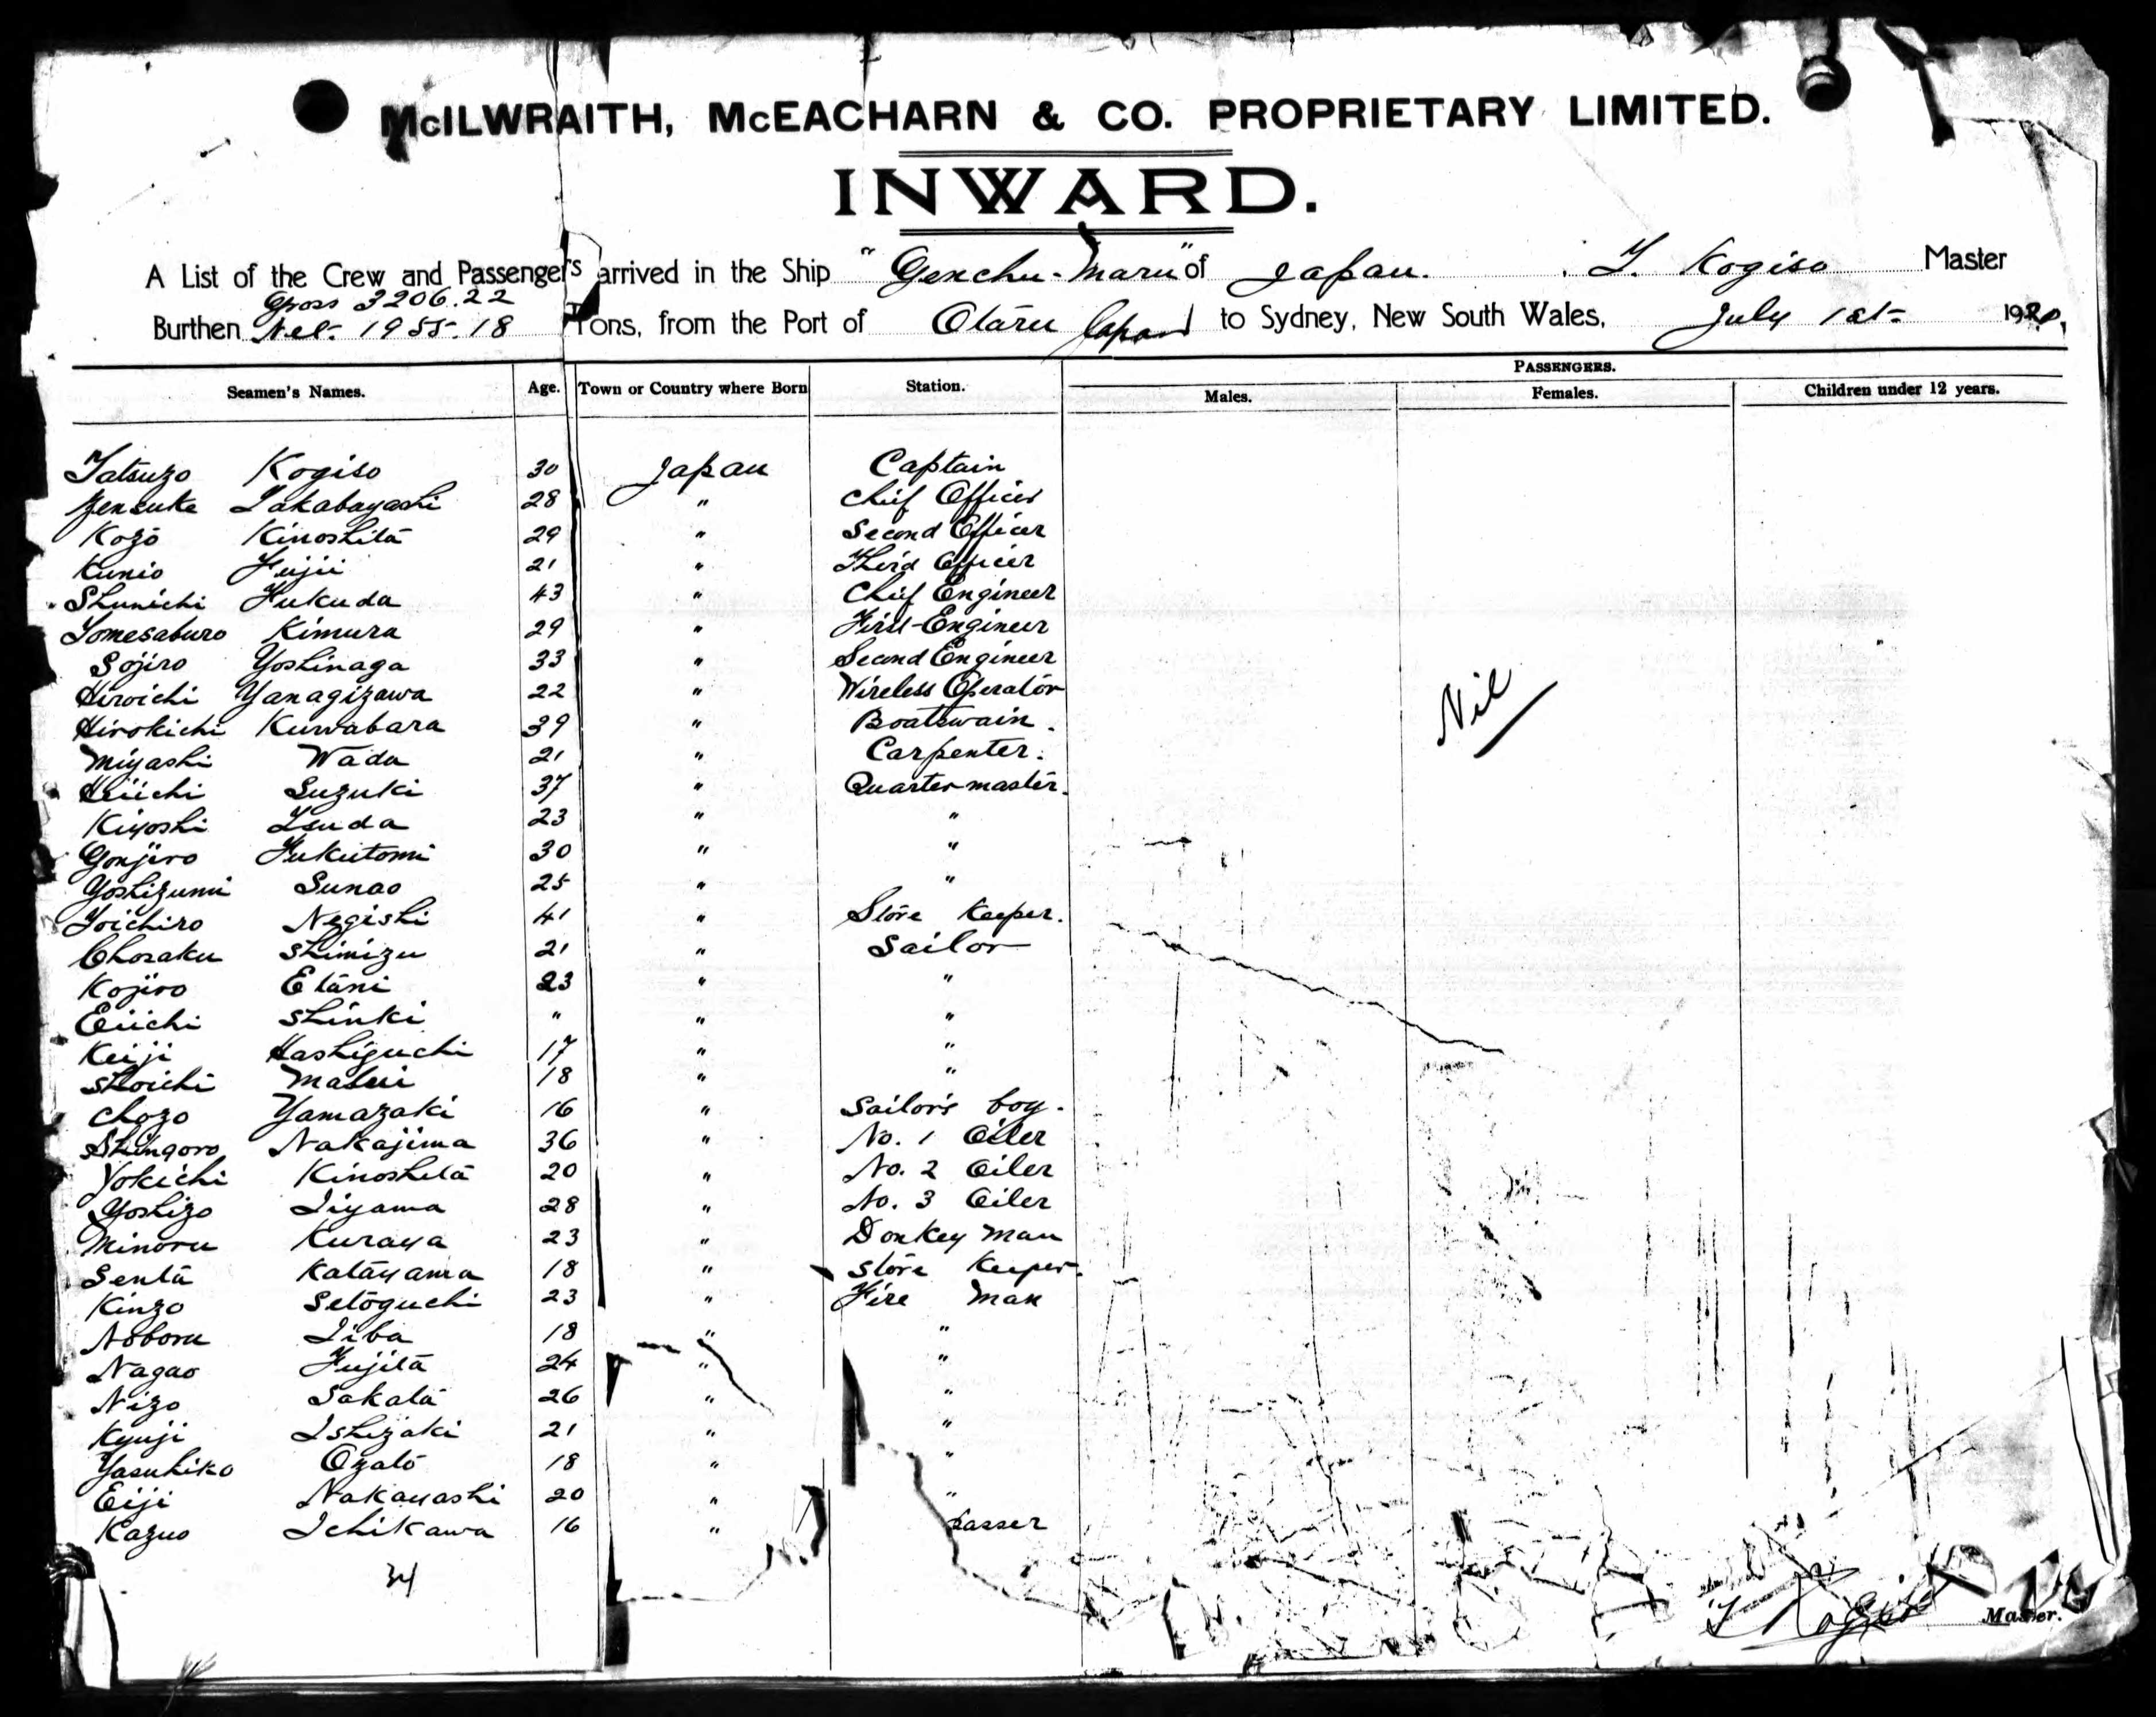 McILWRAITH, McEACHARN & CO. PROPRIETARY LIMITED.
INWARD.
A List of the Crew and Passengers arrived in the Ship "Genchu-Maru" of Japan. T. Kogiso Master
Gross 3206.22
Burthen Net. 1955.18 Tons, from the Port of Otaru Japan to Sydney, New South Wales, July 1st 1920.
PASSENGERS.
Seamen's Names. Age. Town or Country where Born Station. Males. Females. Children under 12 years.
Tatsuzo Kogiso 30 Japan Captain
Zensuke Takabayashi 28 " Chief Officer
Kozo Kinoshita 29 " Second Officer
Kunio Fujii 21 " Third Officer
Shunichi Fukuda 43 " Chief Engineer
Tomesaburo Kimura 29 " First Engineer
Sojiro Yoshinaga 33 " Second Engineer
Hiroichi Yanagizawa 22 " Wireless Operator
Hirokichi Kuwabara 39 " Boatswain.
Miyashi Wada 21 " Carpenter.
Heiichi Suzuki 37 " Quarter master.
Kiyoshi Tsuda 23 " "
Gonjiro Fukutomi 30 " "
Yoshizumi Sunao 25 " "
Toichiro Negishi 41 " Store Keeper.
Chosaku Shimizu 21 " Sailor
Kojiro Etani 23 " "
Eiichi Shinki " " "
Keiji Hashiguchi 17 " "
Shoichi Matsui 18 " "
Chozo Yamazaki 16 " Sailor's boy.
Shingoro Nakajima 36 " No. 1 Oiler
Yokichi Kinoshita 20 " No. 2 Oiler
Yoshizo Iiyama 28 " No. 3 Oiler
Minoru Kuraya 23 " Donkey man
Senta Katayama 18 " Store Keeper.
Kinzo Setoguchi 23 " Fire man
Noboru Iiba 18 " "
Nagao Fujita 24 " "
Nizo Sakata 26 " "
Kyuji Ishizaki 21 " "
Yasuhiko Ozato 18 " "
Eiji Nakayashi 20 " "
Kazuo Ichikawa 16 "
Nil
34
T Kogiso Master.